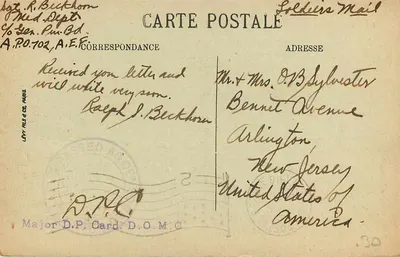 Sgt. R. Beckhorn
Med. Dept.
c/o Gen. Pur. Bd.
A.P.O. 702, A.E.F.
Soldiers Mail
CARTE POSTALE
CORRESPONDANCE
ADRESSE
Received your letter and
will write very soon.
Ralph J. Beckhorn
Mr. & Mrs. O B Sylvester
Bennet Avenue
Arlington,
New Jersey
United States of
America.
D.P.C.
Major D.P. Card. D.O.M.C
LEVY FILS & CIE. PARIS
.30